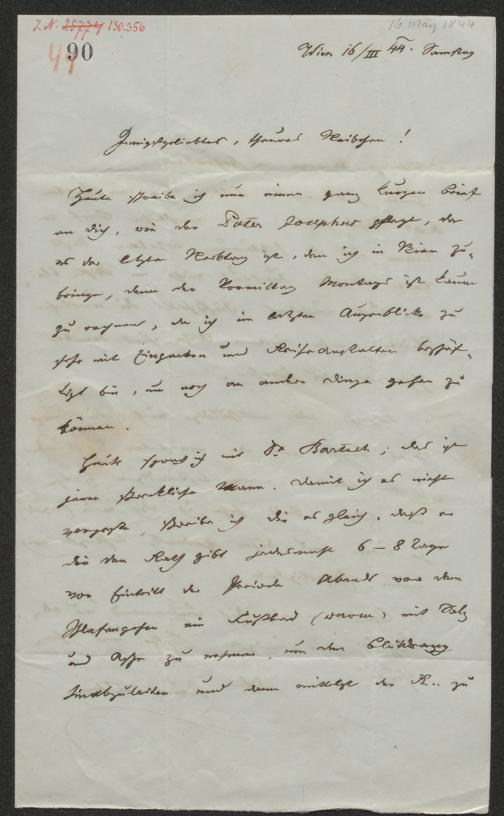 I. N. 25774 130.356
16. März 1844
90
Wien 16/III 44. Samstag
Innigstgeliebtes, theures Weibchen!
Heute schreibe ich nur einen ganz kurzen Brief
an dich, wie der Pater Josephus pflegt, da
es der letzte Werktag ist, den ich in Wien zu-
bringe, denn der Vormittag Montags ist kaum
zu rechnen, da ich im letzten Augenblicke zu
sehr mit Einpacken und Reiseanstalten beschäf-
tigt bin, um noch an andere Dinge gehen zu
können.
Heute sprach ich mit Dr. Bartsch; das ist
jener Mann. Damit ich es nicht
vergesse, schreibe ich dir es gleich, daß er
dir den Rath gibt jedesmal 6–8 Tage
vor Eintritt der Periode Abends vor dem
Schlafengehen ein Fußbad (warm) mit Salz
und Asche zu nehmen, um den Blutdrang
hinabzuleiten und dann mittelst der K.. zu